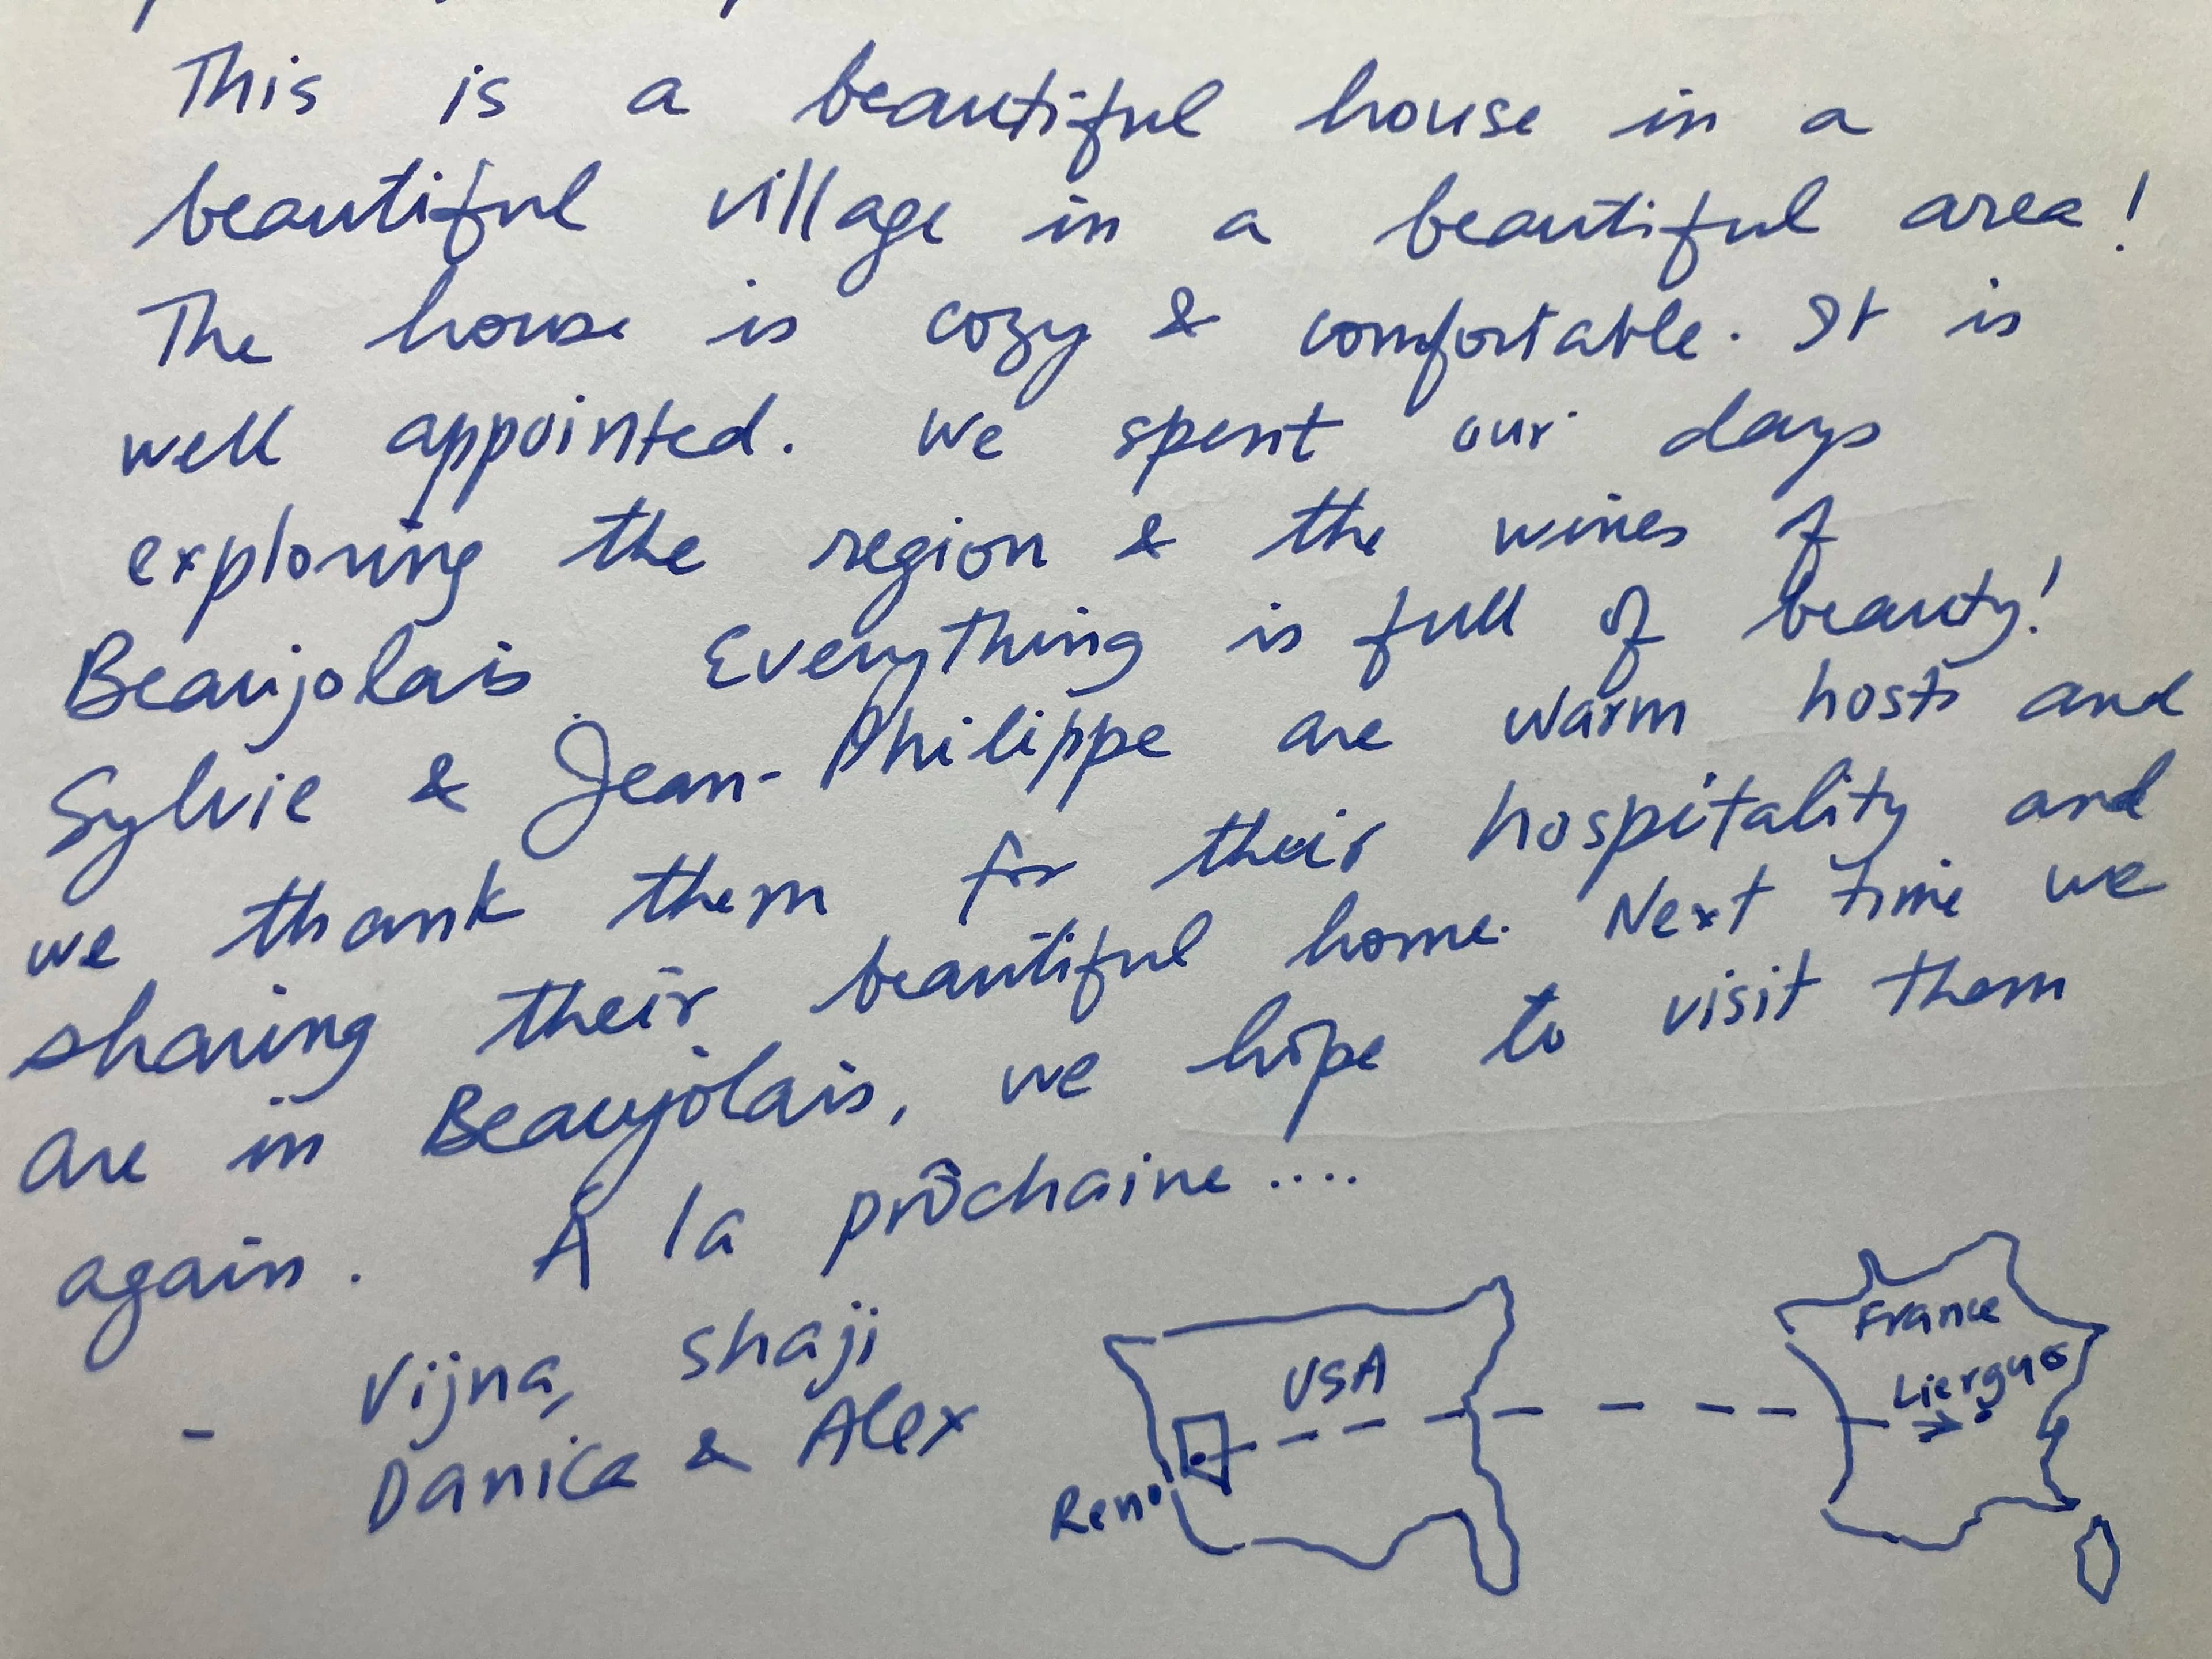 This is a beautiful house in a
beautiful village in a beautiful area!
The house is cozy & comfortable. It is
well appointed. We spent our days
exploring the region & the wines of
Beaujolais. Everything is full of beauty!
Sylvie & Jean-Philippe are warm hosts and
we thank them for their hospitality and
sharing their beautiful home. Next time we
are in Beaujolais, we hope to visit them
again. A la prôchaine....
- Vijna, Shaji
Danica & Alex
USA
Reno
France
Liergus